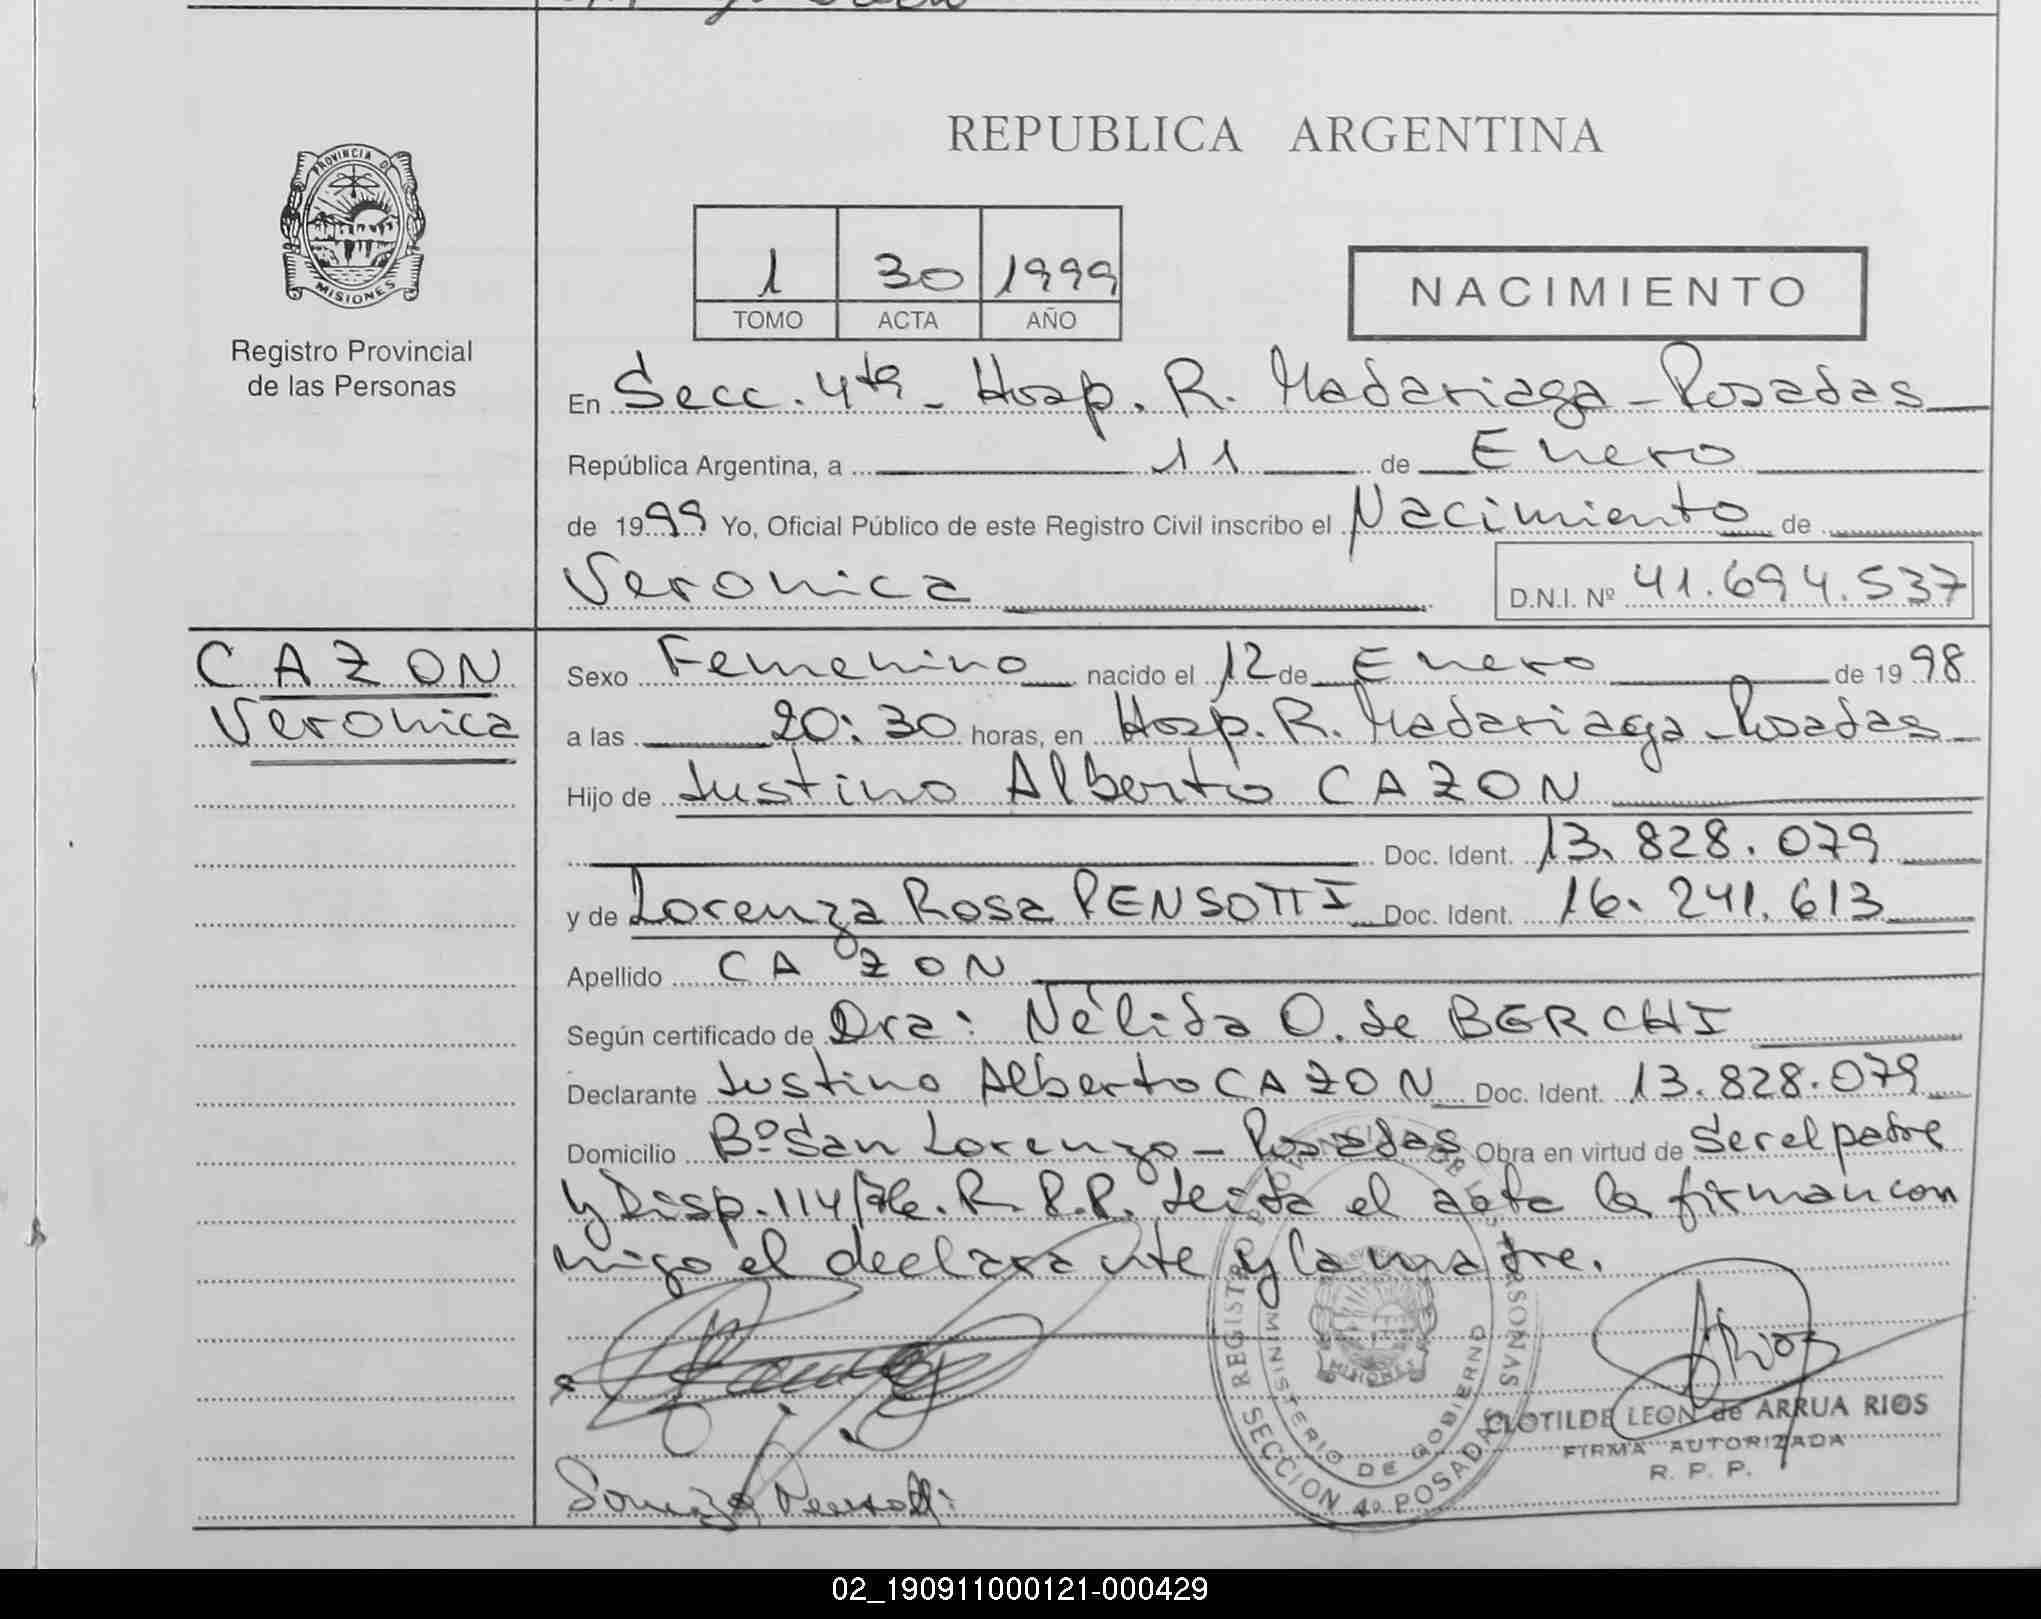 REPUBLICA ARGENTINA
PROVINCIA DE
MISIONES
Registro Provincial
de las Personas
1 30 1999
TOMO ACTA AÑO
NACIMIENTO
En Secc. 4ta - Hosp. R. Madariaga - Posadas
República Argentina, a 11 de Enero
de 1999 Yo, Oficial Público de este Registro Civil inscribo el Nacimiento de
Veronica D.N.I. Nº 41.694.537
CAZON
Veronica
Sexo Femenino nacido el 12 de Enero de 1998
a las 20:30 horas, en Hosp. R. Madariaga - Posadas -
Hijo de Justino Alberto CAZON
Doc. Ident. 13.828.079
y de Lorenza Rosa PENSOTTI Doc. Ident. 16.241.613
Apellido CAZON
Según certificado de Dra: Nélida O. de BERCHI
Declarante Justino Alberto CAZON Doc. Ident. 13.828.079
Domicilio Bº San Lorenzo - Posadas Obra en virtud de Ser el padre
y Disp. 114/76. R.P.P. Leída el acta la firman con
migo el declarante y la madre.
REGISTRO PROVINCIAL DE LAS PERSONAS
MINISTERIO DE GOBIERNO
MISIONES
SECCION 4º POSADAS
ARios
CLOTILDE LEON de ARRUA RIOS
FIRMA AUTORIZADA
R. P. P.
Pensotti
02_190911000121-000429